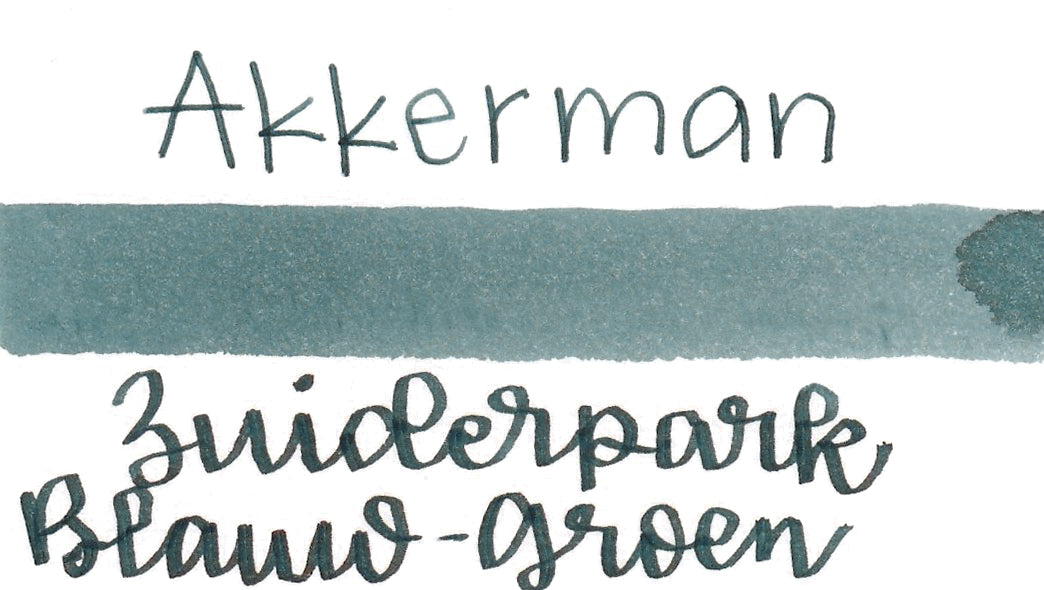 Akkerman
Zuiderpark
Blauw-Groen